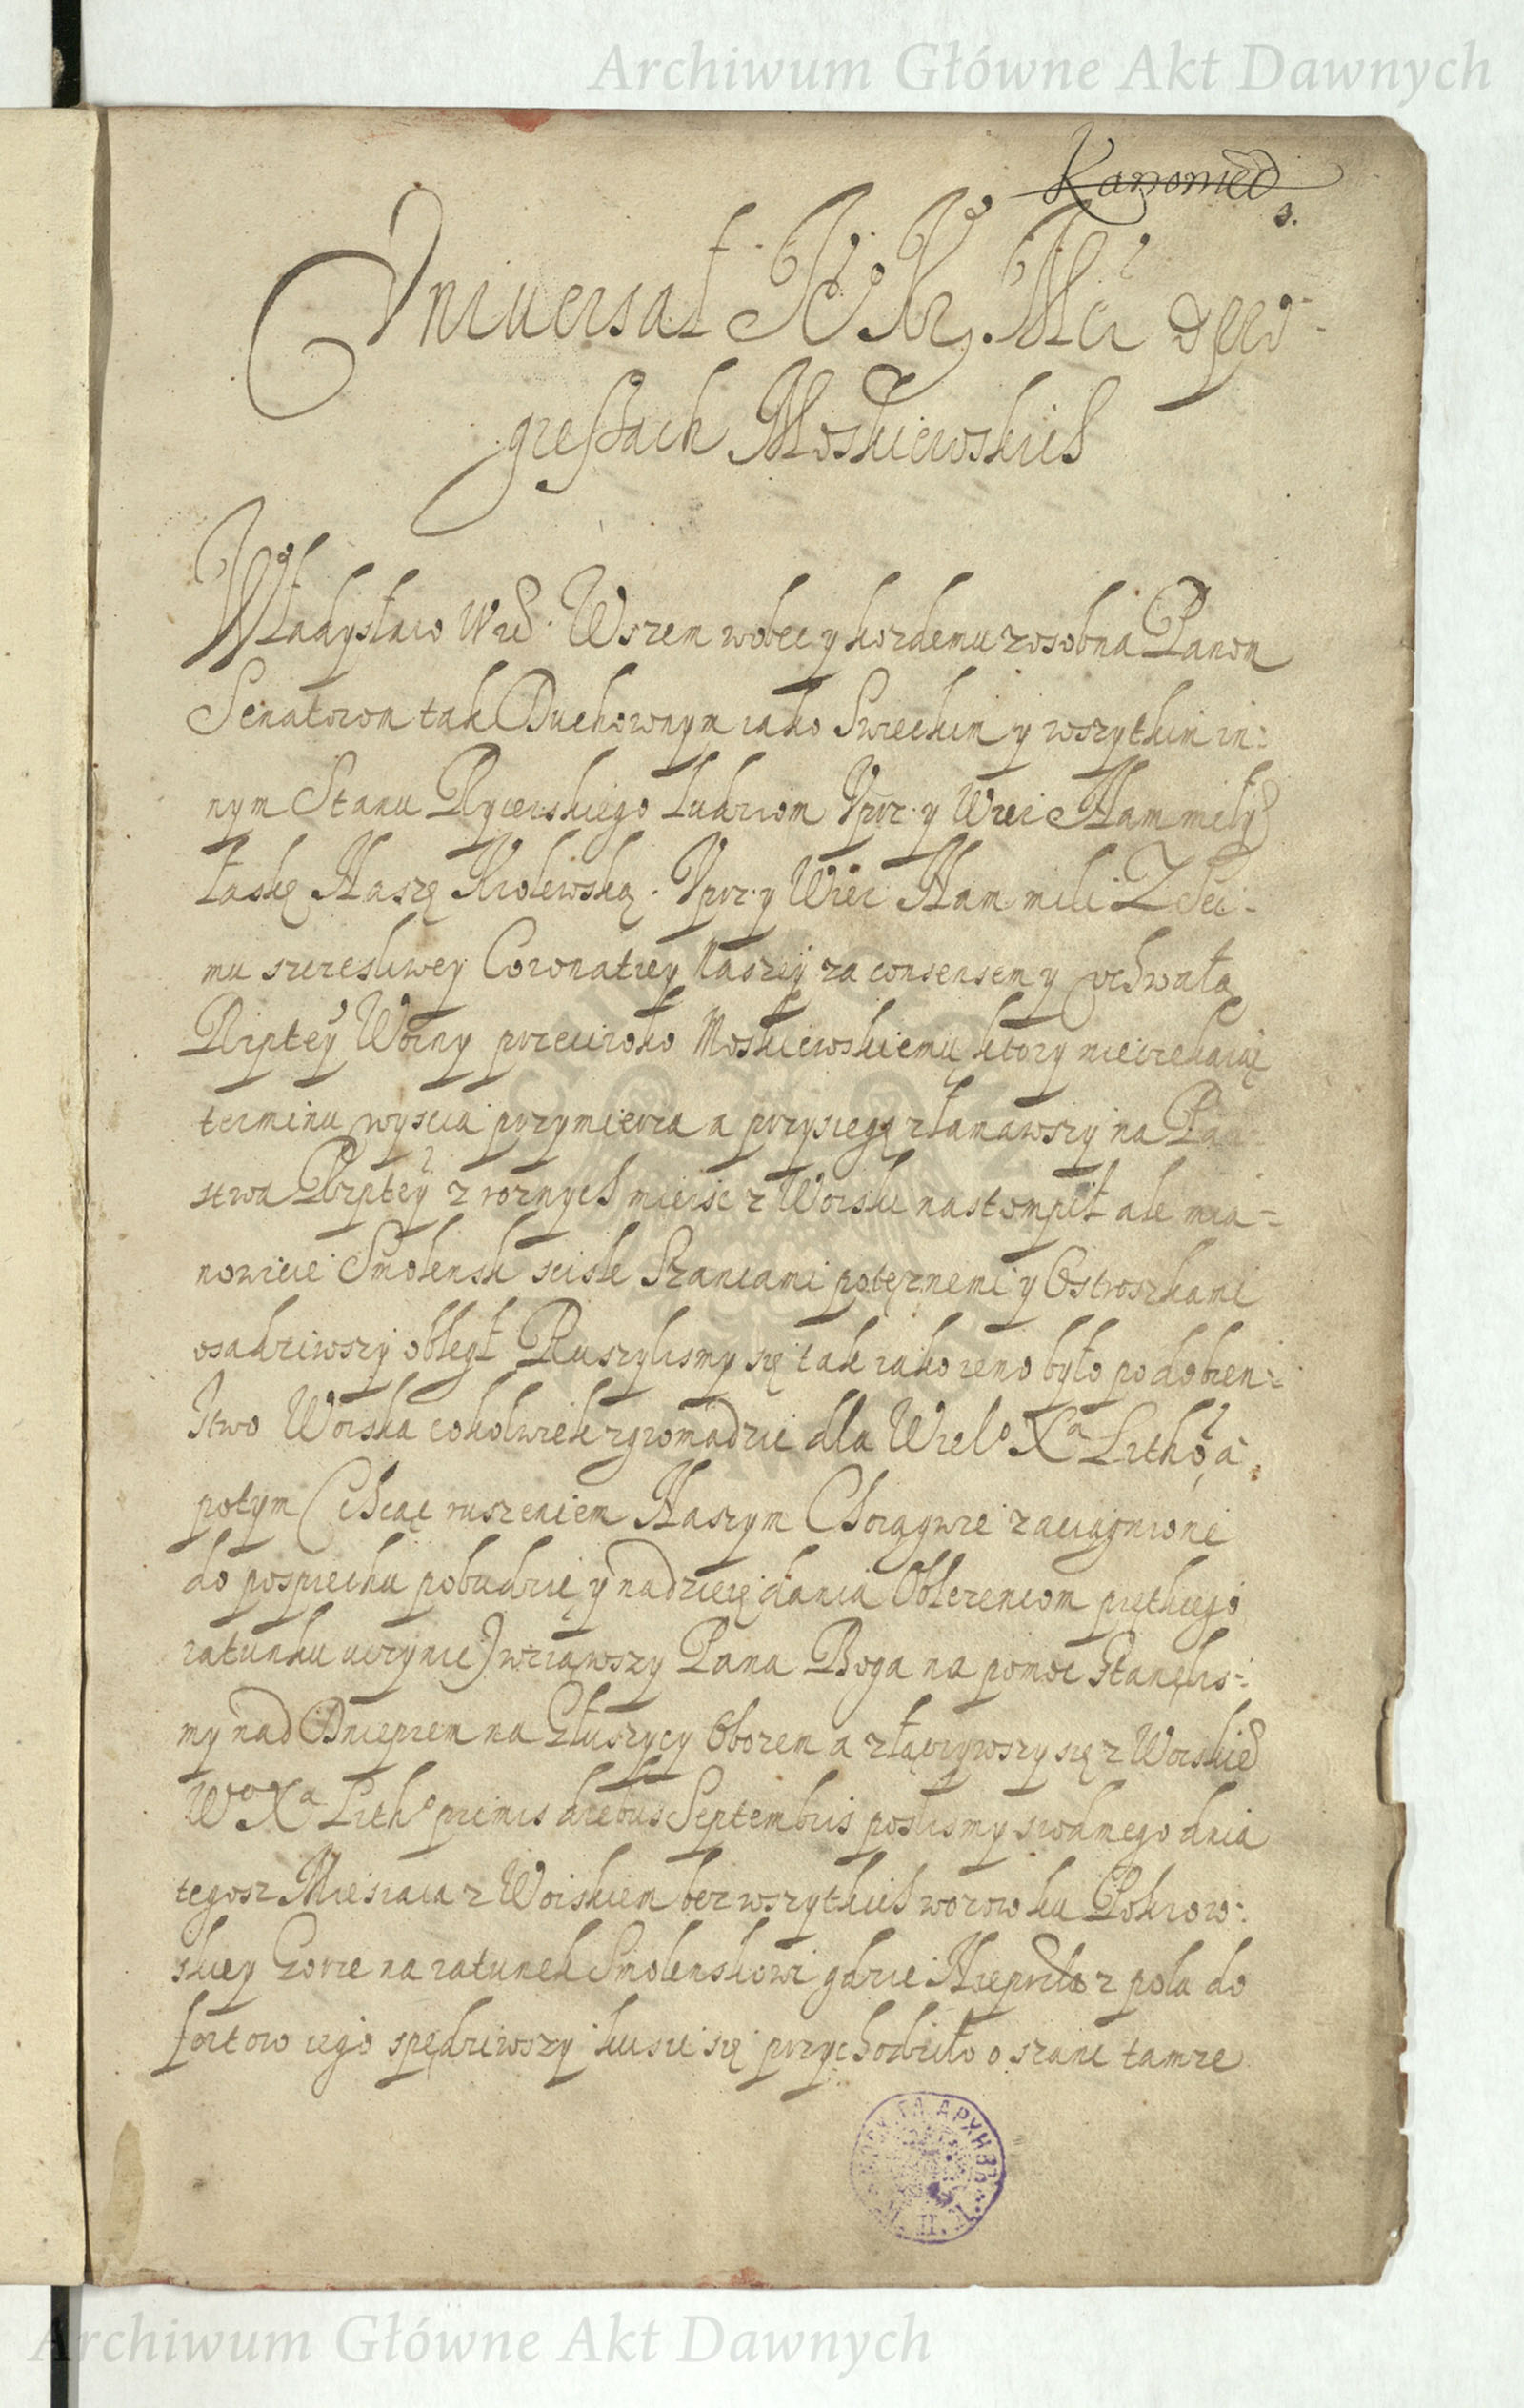 Archiwum Główne Akt Dawnych
3.
Vniuersał J. K. Mci o pro-
gressach Moskiewskich
Władysław Wsze Wszem wobec y kozdemu zosobna Panom
Senatorom tak Duchownym iako Swieckim y wszytkim in:
nym Stanu Rycerskiego Ludziom Vprz. y Wier Nam miłych
Łaskę Naszę Krolewską. Vprz. y Wier Nam mili Z Sei-
mu szczesliwey Coronatiey Naszey za consensem y vchwałą
Rzptey Woiny przeciwko Moskiewskiemu, ktory nieczekaiąc
terminu wyscia przymierza a przysięgę złamawszy na Pań-
stwa Rzptey z roznych mieisc z Woiski nastompił ale mia-
nowicie Smolensk scisle Szancami potęznemi y Ostroszkami
osadziwszy obległ Ruszylismy się tak iako zeno było podobien-
stwo Woiska cokolwiek zgromadzic dla Wiel° Xa Lith° a
potym (Chcąc ruszeniem Naszym Chorągwie zaciągnione
do pospiechu pobudzic y nadzieię dania Oblezencom prętkiego
ratunku uczynic) wziąwszy Pana Boga na pomoc stanęlis-
my nad Dnieprem na Głuszycy Obozem a złączywszy się z Woiskiem
W° Xa Lith° primis diebus Septembris poslismy siodmego dnia
tegosz Miesiaca z Woiskiem bez wszytkich wozow ku Pokrow-
skiey Gorze na ratunek Smolenskowi gdzie Nieprla z pola do
fortow iego spędziwszy kusic się przychodziło o szanc tamze
Archiwum Główne Akt Dawnych